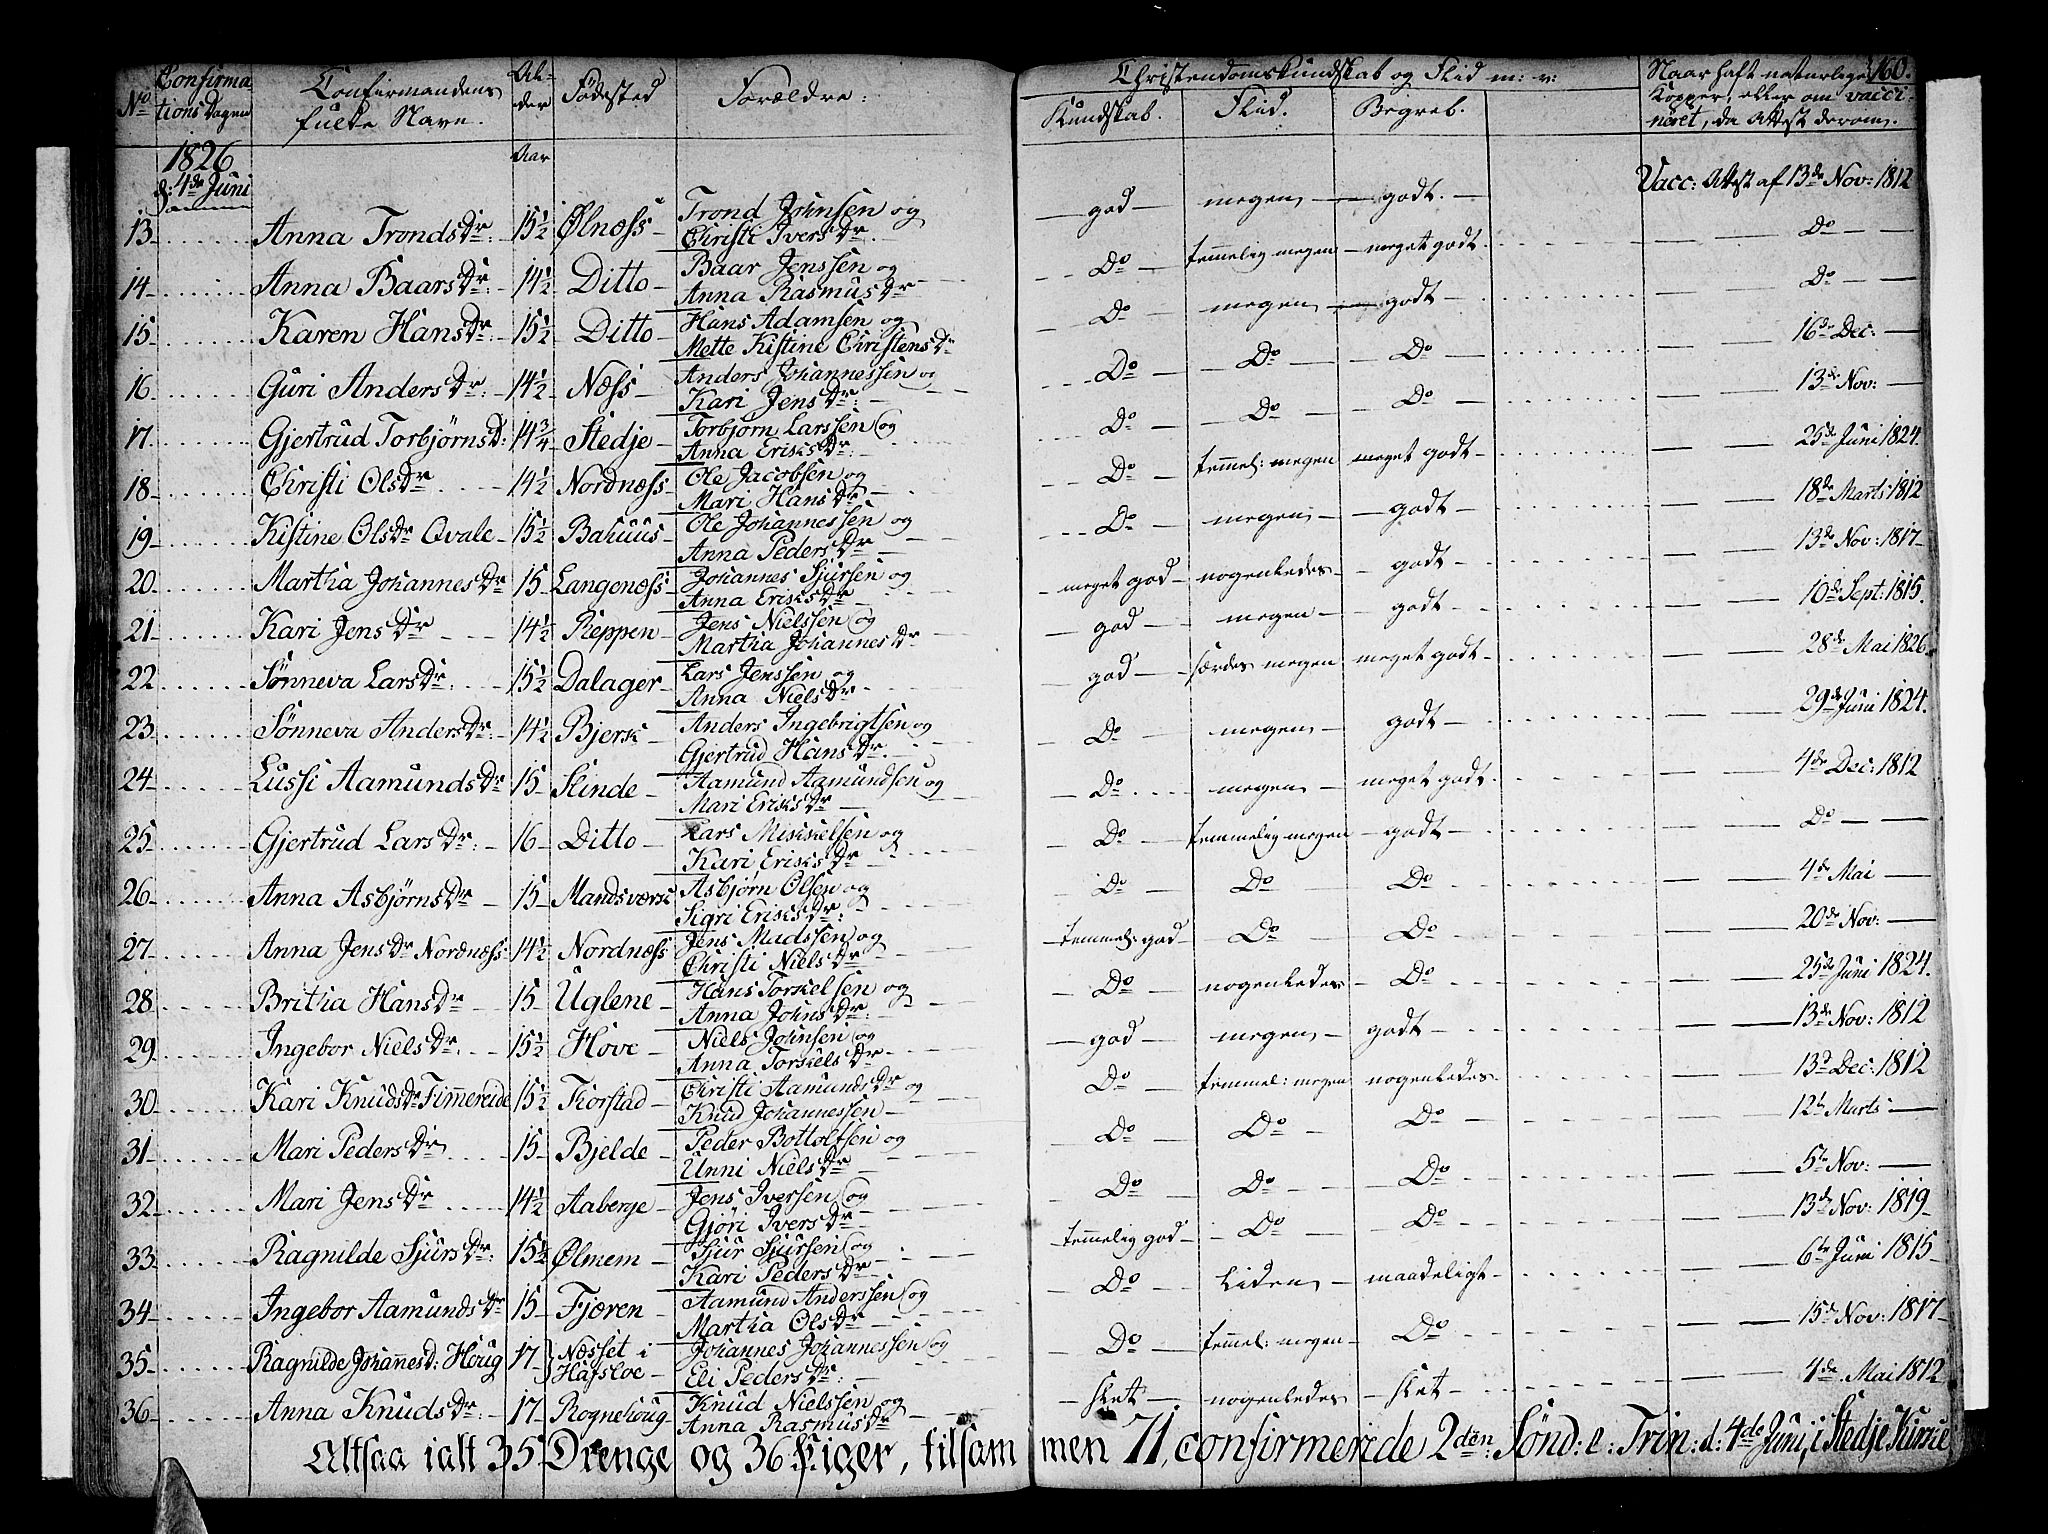 No
Confirma
tions Dagen
Confirmandens
fulde Navn.
Al-
der
Födested
Forældre:
Christendomskundskab og Flid m: v:
Kundskab.
Flid.
Begreb.
Naar haft naturlige
Kopper, eller om vacci-
neret, da Attest derom.
160.
1826
d: 4de Juni
Aar
13 Anna TrondsDr: 15½ Ølnæss Trond Johnsen og Christi IversDr god megen godt. Vacc: Attest af 13de Nov: 1812
14 Anna BaarsDr: 14½ Ditto Baar Jenssen og Anna RasmusDr Do temmelig megen meget godt Do
15 Karen HansDr 15½ Ditto Hans Adamsen og Mette Kistine ChristensDr Do megen godt Do
16 Guri AndersDr: 14½ Næss Anders Johannessen og Kari JensDr: Do Do Do 16de Dec:
17 Gjertrud TorbjörnsD: 14¾ Stedje Torbjörn Larssen og Anna EriksDr: Do Do Do 13de Nov:
18 Christi OlsDr 14½ Nordnæss Ole Jacobsen og Mari HansDr Do temmel: megen meget godt 25de Juni 1824.
19 Kistine OlsDr Qvale 15½ Bahuus Ole Johannessen og Anna PedersDr Do megen godt 18de Marts 1812
20 Martha JohannesDr 15 Langenæss Johannes Sjursen og Anna EriksDr meget god nogenledes godt 13de Nov: 1817
21 Kari JensDr 14½ Reppen Jens Nielssen og Martha JohannesDr god megen godt 10de Sept: 1815.
22 Sönneva LarsDr: 15½ Dalager Lars Jenssen og Anna NielsDr god særdes megen meget godt 28de Mai 1826
23 Sönneva AndersDr: 14½ Bjerk Anders Ingebrigtsen og Gjertrud HansDr: Do megen godt 29de Juni 1824.
24 Lussi AamundsDr 15 Slinde Aamund Aamundsen og Mari EriksDr Do megen meget godt 4de Dec: 1812
25 Gjertrud LarsDr: 16 Ditto Lars Mikkelsen og Kari EriksDr Do temmelig megen godt Do
26 Anna AsbjörnsDr 15 Mandsværk Asbjörn Olsen og Sigri EriksDr: Do Do Do 4de Mai
27 Anna JensDr Nordnæss 14½ Nordnæss Jens Madssen og Christi NielsDr temmel: god Do Do 20de Nov:
28 Britha HansDr 15 Uglene Hans Torkelsen og Anna JohnsDr: Do nogenledes Do 25de Juni 1824.
29 Ingebor NielsDr: 15½ Hove Niels Johnsen og Anna TorkelsDr god megen godt 13de Nov: 1812
30 Kari KnudsDr Fimmereide 15½ Fiorstad Christi AamundsDr og Knud Johannessen Do temmel: megen nogenledes 13d Dec: 1812
31 Mari PedersDr 15 Bjelde Peder Bottolfsen og Unni NielsDr Do Do Do 12te Marts
32 Mari JensDr 14½ Aaberge Jens Iversen og Gjöri IversDr Do Do Do 5te Nov:
33 Ragnilde SjursDr: 15½ Ølmem Sjur Sjursen og Kari PedersDr temmelig god Do Do 13de Nov: 1819
34 Ingebor AamundsDr 15 Fjæren Aamund Anderssen og Martha OlsDr Do Liden maadeligt 6te Juni 1815
35 Ragnilde JohannesD: Houg 17 Næsset i Hafsloe Johannes Johannessen og Eli PedersDr: Do temmel: megen Do 15de Nov: 1817
36 Anna KnudsDr: 17 Rognehoug Knud Nielssen og Anna RasmusDr slet nogenledes slet 4de Mai 1812
Altsaa ialt 35 Drenge og 36 Piger, tilsammen 71, confirmerede 2den Sönd: e: Trin: d: 4de Juni, i Stedje Kirke